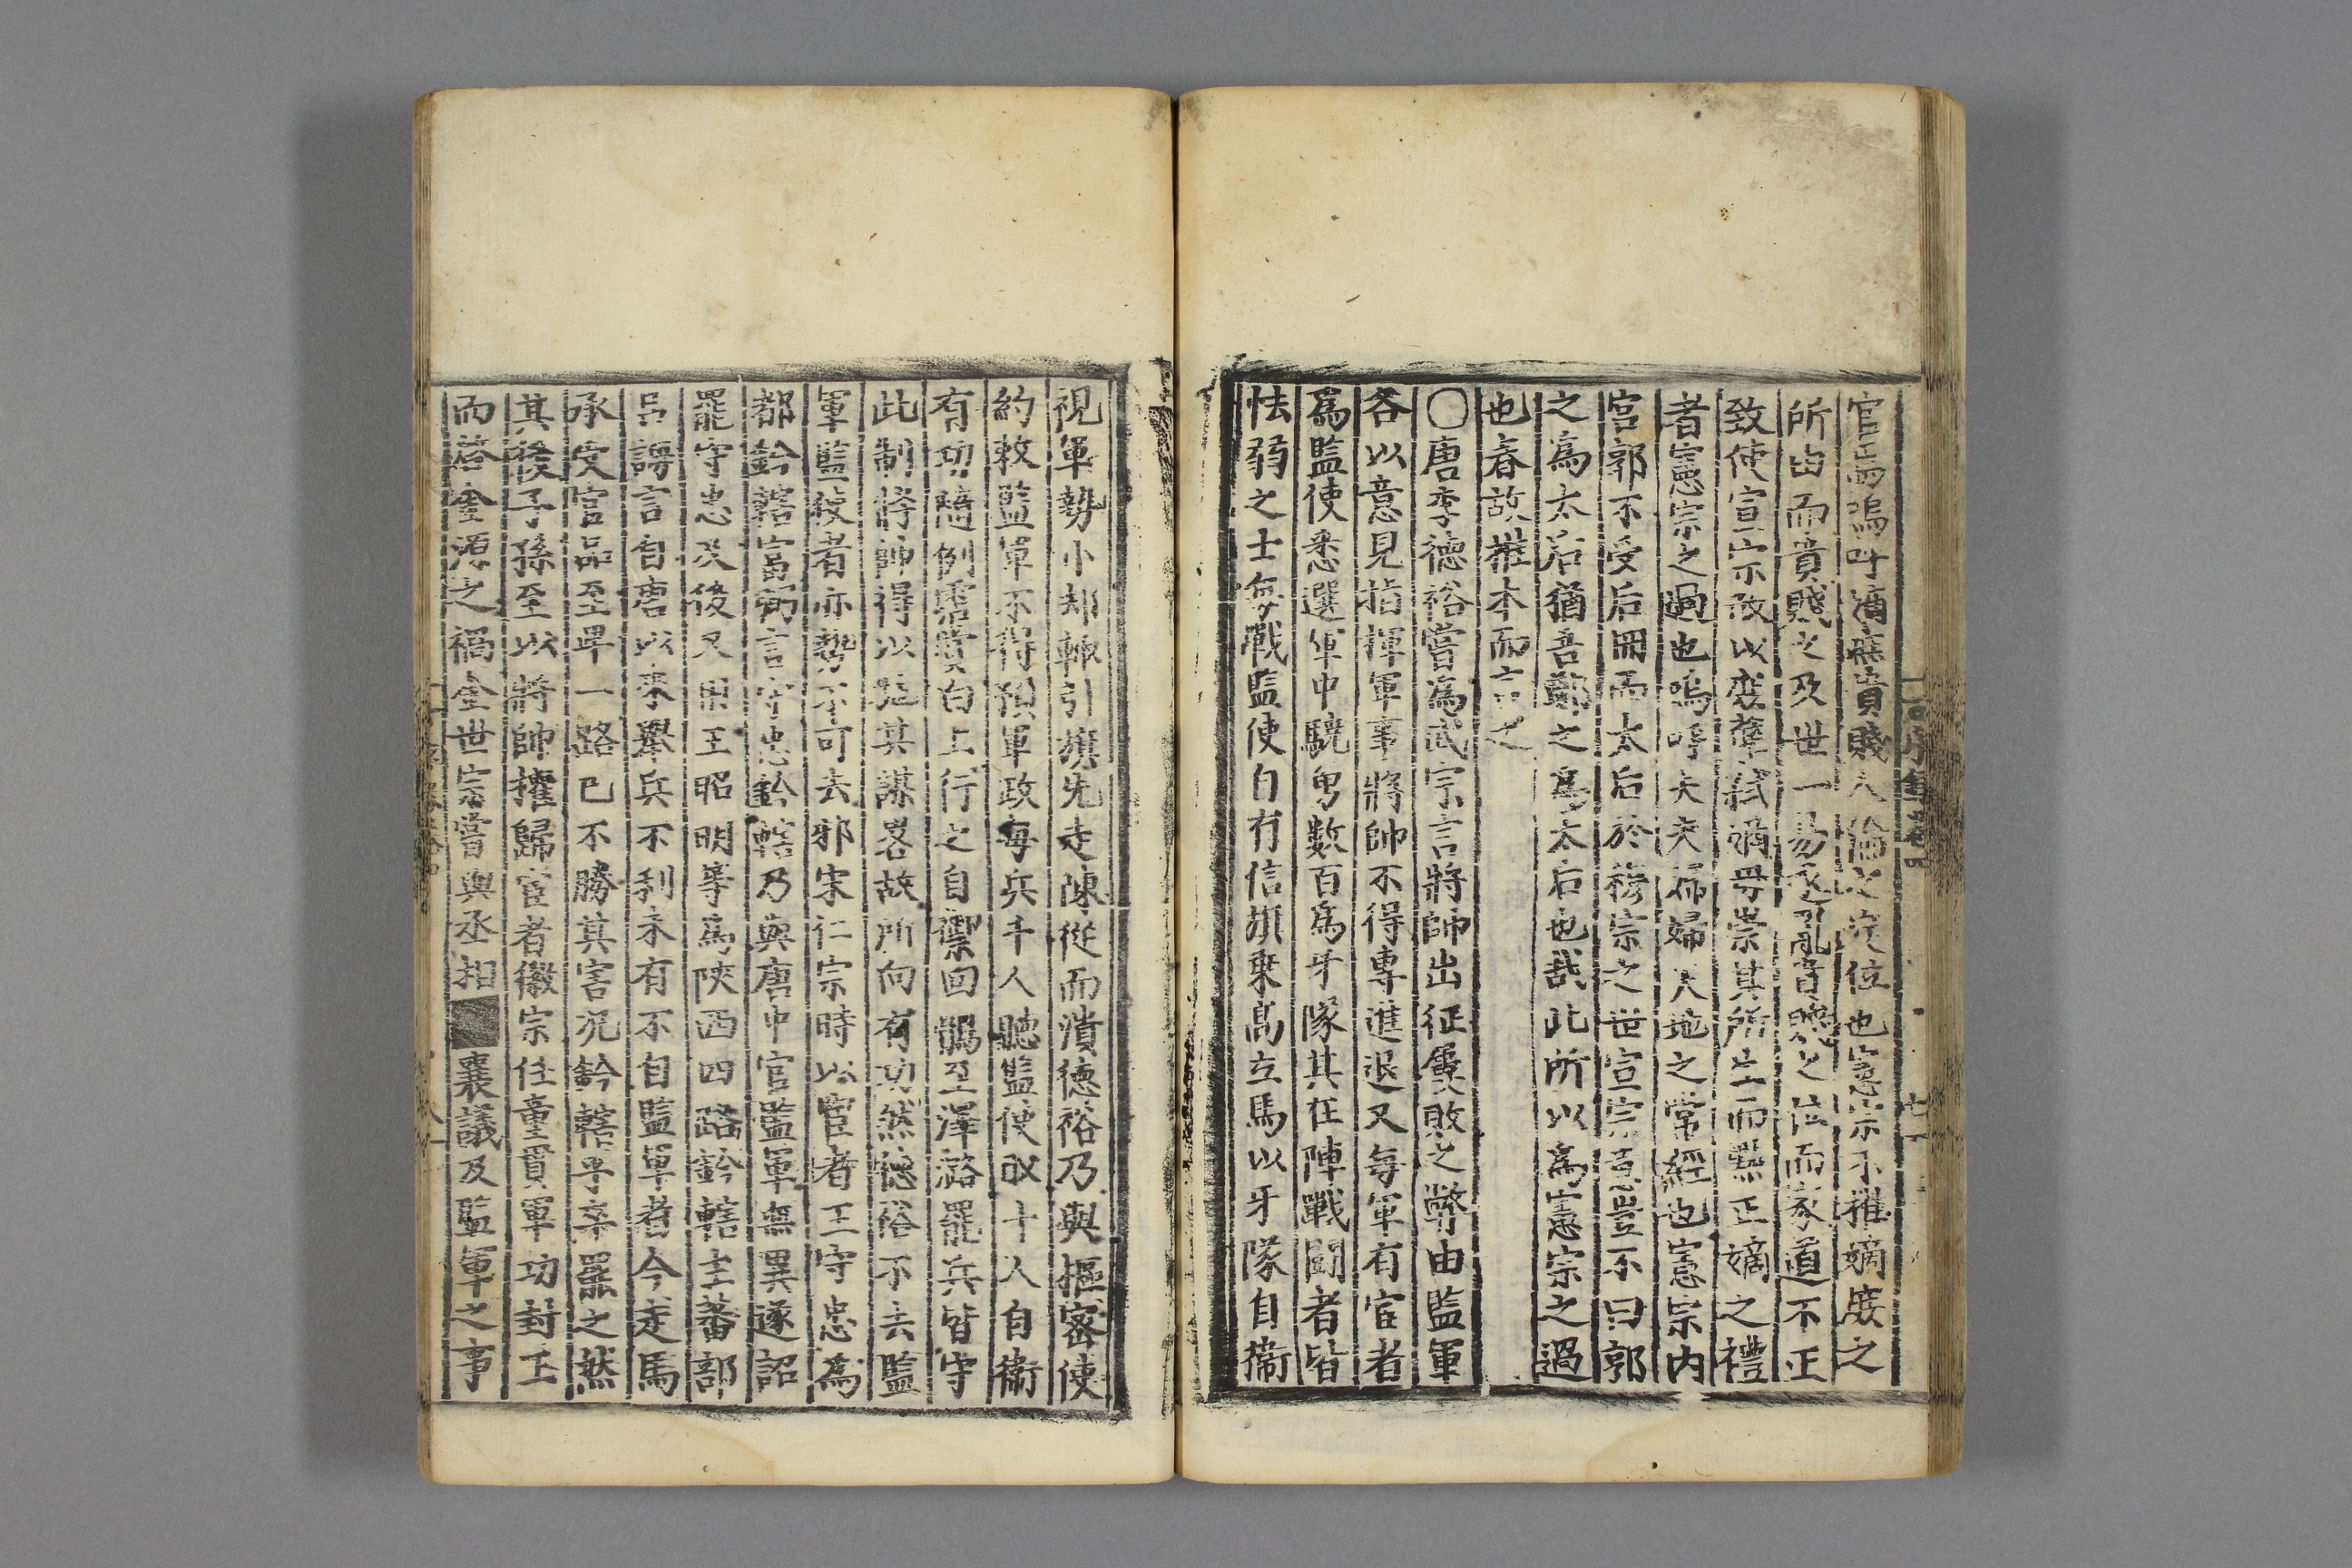 官正而嗚呼嫡庶貴賤人倫之定位也憲宗不推嫡庶之
所由而貴賤之及世一易逐亂貴賤之位而家道不正
致使宣宗敢以疑
弑嫡母崇其所生而黜正嫡之禮
者憲宗之過也嗚呼夫夫婦婦天地之常經也憲宗内
宮郭不受后冊而太后於穆宗之世宣宗意豈不曰郭
之爲太后猶吾鄭之爲太后也哉此所以爲憲宗之過
也春故推本而言之
〇唐李德裕嘗爲武宗言將帥出征屢敗之弊由監軍
各以意見指揮軍事將帥不得專進退又每軍有宦者
爲監使悉選軍中驍勇數百爲牙隊其在陣戰鬪者皆
怯弱之士每戰監使自有信旗乘高立馬以牙隊自衞
視軍勢小却輒引旗先走陳從而潰德裕乃與樞密使
約敕監軍不得預軍政每兵千人聽監使取十人自衞
有功隨例霑賞自上行之自禦回鶻至澤潞罷兵皆守
此制將帥得以施其謀畧故所向有功然德裕不去監
軍監役者亦勢不可去邪宋仁宗時以宦者王守忠爲
都鈐轄富弼言守忠鈐轄乃與唐中官監軍無異遂詔
罷守忠及後又用王昭明等爲陝西四路鈐轄主蕃部
呂誨言自唐以來舉兵不利未有不自監軍者今走馬
承受官品至卑一路已不勝其害况鈐轄乎卒罷之然
其後子孫至以將帥權歸宦者徽宗任童貫軍功封王
而啓金源之禍金世宗嘗與丞相襄議及監軍之事